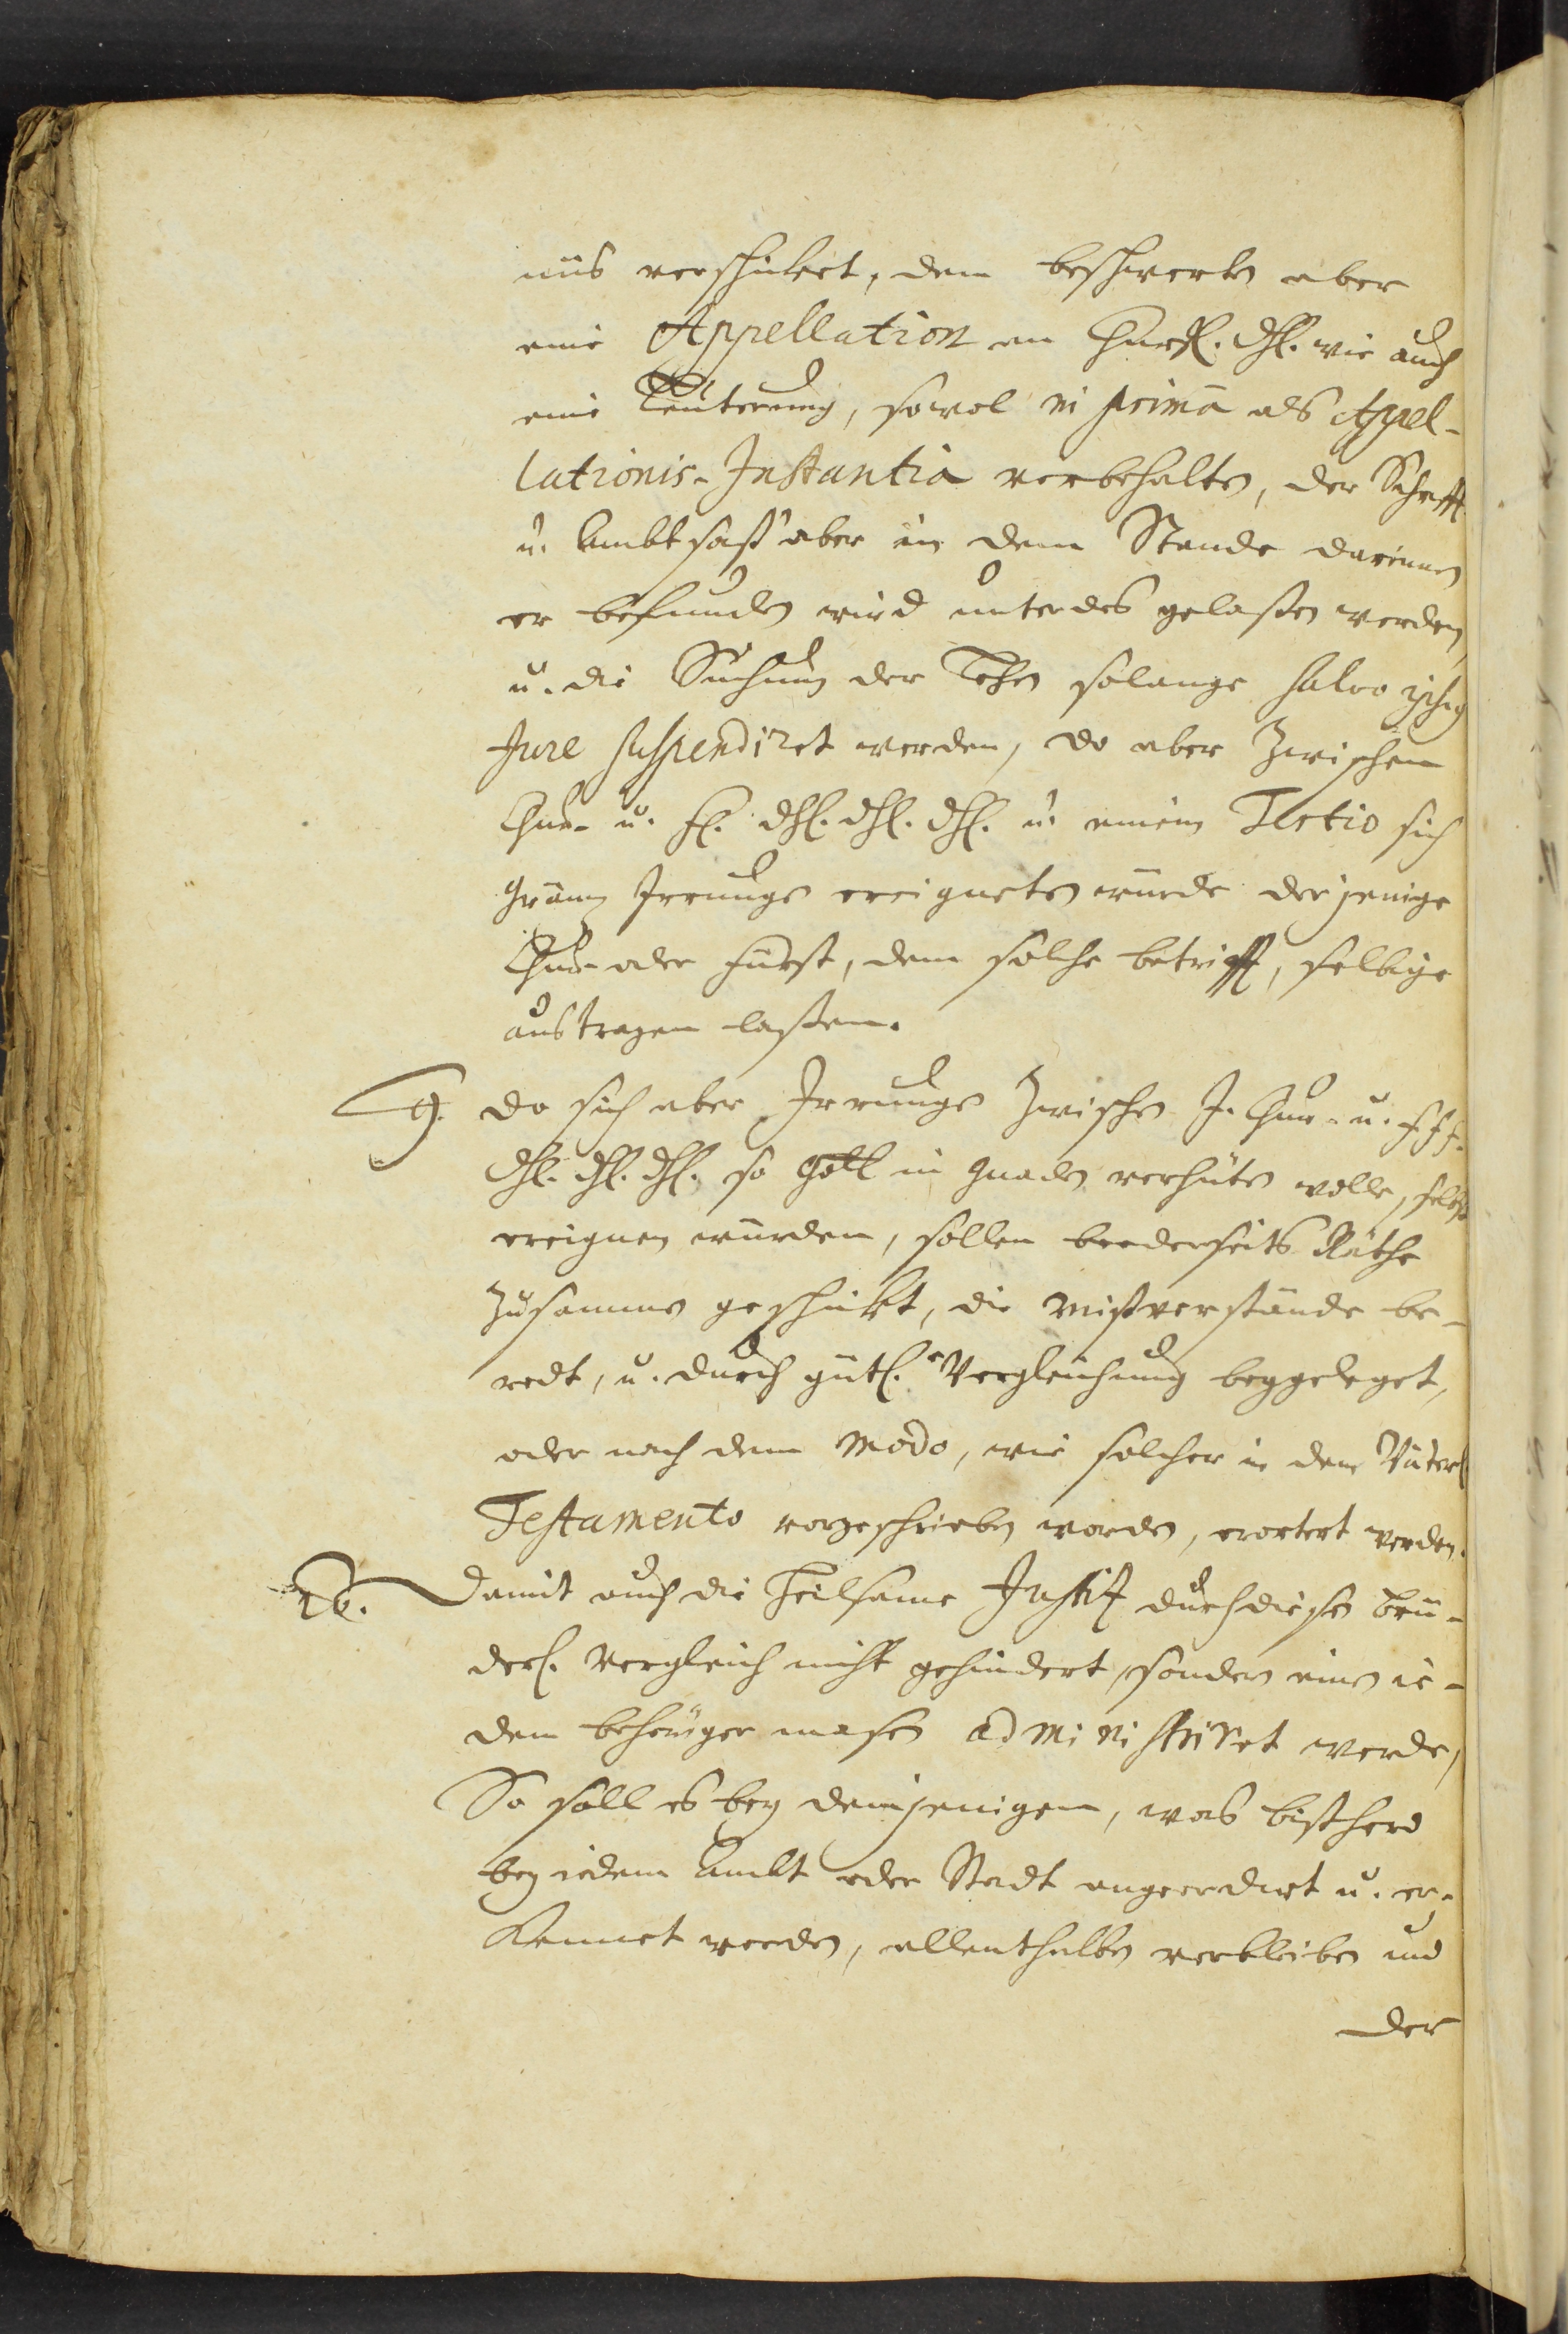 nüs verschicket, dem beschwerten aber
eine Appellation an Churfl. Dhl. wie auch
eine Leuterung, sowol in primâ als Appel-
lationis-Instantiâ verbehalten, der Schrifft
u. Ambtsaß aber in dem Stande darinnen
er befunden wird unterdes gelaßen werden,
u. die Suchung der Lehen solange salvo
Jure suspendiret werden, do aber zwischen
Chur- u. fl. Dhl. Dhl. Dhl. u. einem Tertio sich
Gräntz Irrungen ereigneten würde derjenige
Chur- oder Fürst, dem solche betrifft, selbige
austragen laßen.
9. Do sich aber Irrungen zwischen I. Chur- u. fff.
Dhl. Dhl. Dhl. so Gott in Gnaden verhüten wolle, selbst
ereignen würden, sollen beederseits Räthe
zusammen geschickt, die Mißverstände be-
redt, u. durch gütl. Vergleichung beygeleget,
oder nach dem Modo, wie solcher in dem Väterl.
Testamento vorgeschrieben worden, erortert werden.
Damit auch die heilsame Justitz durch diesen brü-
derl. Vergleich nicht gehindert, sondern einem ie-
dem behöriger maßen administriret werde,
So soll es bey demjenigen, was bißhero
bey iedem Ambt oder Stadt angeordnet u. er-
kennet worden, allenthalben verbleiben und
der